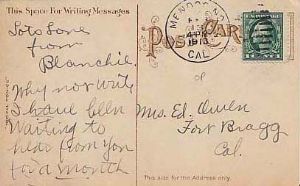 This Space For Writing Messages
Lots Love
from
Blanchie.
Why not write
I have been
Waiting to
hear from you
for a month
MENDOCINO
4 PM
1913
CAL
POST CARD
Mrs. Ed. Owen
Fort Bragg
Cal.
This side for the Address only.